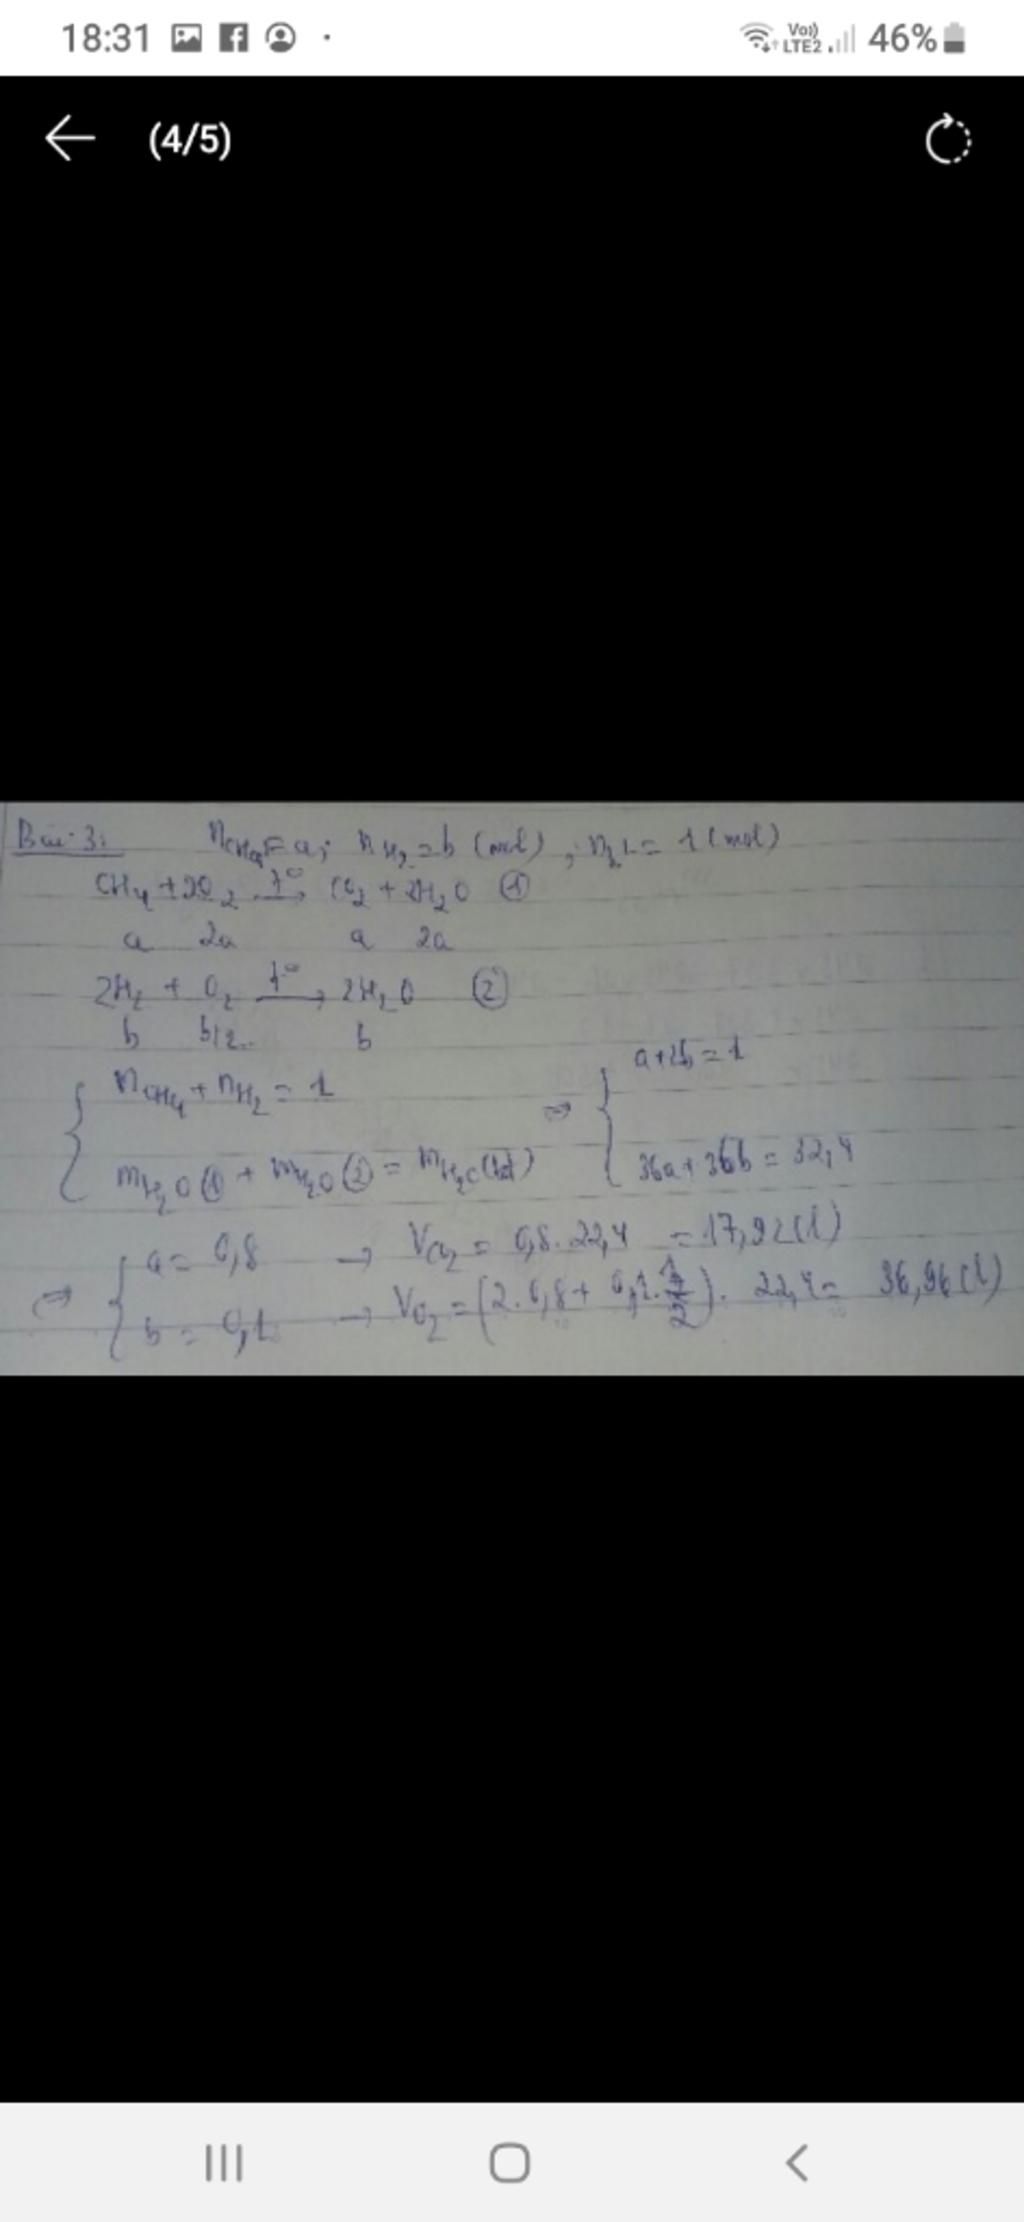 18:31
Vo)) LTE2 46%
(4/5)
Bài 3: nCH4 = a; nH2 = b (mol), = 1 (mol)
CH4 + 2O2 t° CO2 + 2H2O ①
a 2a a 2a
2H2 + O2 t° → 2H2O ②
b b/2 b
nCH4 + nH2 = 1 => a+2b = 1
mH2O ① + mH2O ② = mH2O 36a + 36b = 32,4
=> a = 0,8 → VCO2 = 0,8. 22,4 = 17,92 (l)
b = 0,1 → VO2 = (2. 0,8 + 0,1. 1/2). 22,4 = 36,96 (l)